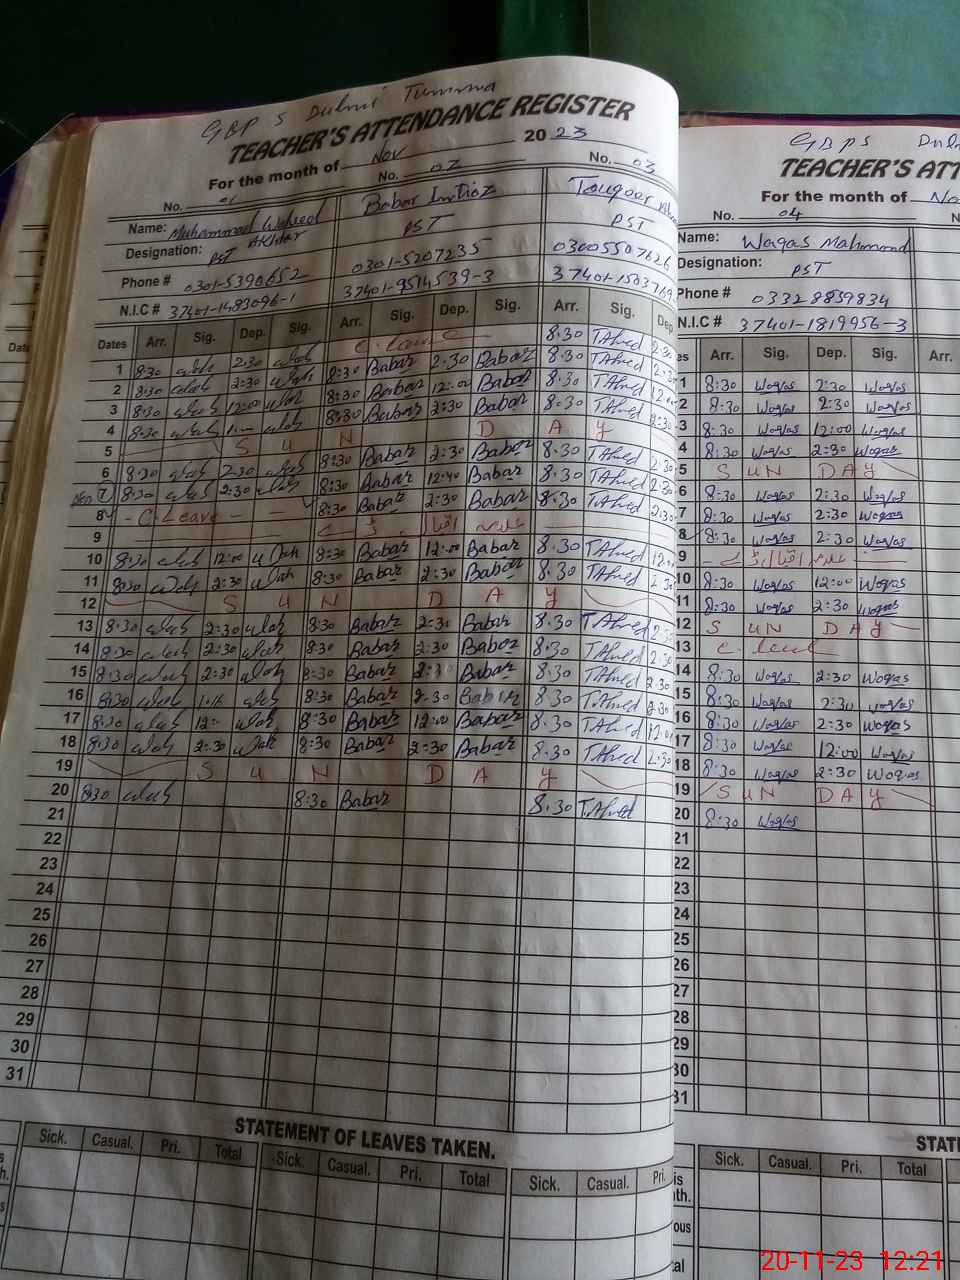 GBPS Dulmi Tumma
TEACHER'S ATTENDANCE REGISTER
For the month of Nov 2023
No. 01 No. 02 No. 03
Name: Muhammad Waheed Akhtar Babar Imtiaz Touqeer
Designation: PST PST PST
Phone # 0301-5390652 0301-5207235 03005507626
N.I.C # 37401-1483096-1 37401-9514539-3 37401-1503769
Dates Arr. Sig. Dep. Sig. Arr. Sig. Dep. Sig. Arr. Sig. Dep
1 8:30 2:30 C. leave 8.30 TAhred 2:30
2 8:30 2:30 8:30 Babar 2:30 Babar 8.30 TAhred 2:30
3 8:30 12:00 8:30 Babar 12:00 Babar 8.30 TAhred 12:00
4 8:30 8:30 Babar 2:30 Babar 8.30 TAhred 2:30
5 S U N D A Y
6 8:30 2:30 8:30 Babar 2:30 Babar 8.30 TAhred 2:30
7 8:30 2:30 8:30 Babar 12:40 Babar 8.30 TAhred 2:30
8 - C. Leave - - 8:30 Babar 2:30 Babar 8.30 TAhred 2:30
9
10 8:30 12:00 8:30 Babar 12:00 Babar 8.30 TAhred 12:00
11 8:30 2:30 8:30 Babar 2:30 Babar 8.30 TAhred 2:30
12 S U N D A Y
13 8:30 2:30 8:30 Babar 2:30 Babar 8.30 TAhred 2:30
14 8:30 2:30 8:30 Babar 2:30 Babar 8.30 TAhred
15 8:30 2:30 8:30 Babar 2:30 Babar 8.30 TAhred 2:30
16 8:30 1:16 8:30 Babar 2:30 Babar 8.30 TAhred 2:30
17 8:30 12:- 8:30 Babar 12:00 Babar 8.30 TAhred 12:00
18 8:30 2:30 8:30 Babar 2:30 Babar 8.30 TAhred 2:30
19 S U N D A Y
20 8:30 8:30 Babar 8.30 TAhred
21
22
23
24
25
26
27
28
29
30
31
STATEMENT OF LEAVES TAKEN.
Sick. Casual. Pri. Total Sick. Casual. Pri. Total Sick. Casual. Pri.
GBPS Dul
TEACHER'S ATT
For the month of No
No. 04
Name: Waqas Mahmood
Designation: PST
Phone # 03328839834
N.I.C # 37401-1819956-3
es Arr. Sig. Dep. Sig. Arr.
1 8:30 Waqas 2:30 Waqas
2 8:30 Waqas 2:30 Waqas
3 8:30 Waqas 12:00 Waqas
4 8:30 Waqas 2:30 Waqas
5 SUN DAY
6 8:30 Waqas 2:30 Waqas
7 8:30 Waqas 2:30 Waqas
8 8:30 Waqas 2:30 Waqas
9
10 8:30 Waqas 12:00 Waqas
11 8:30 Waqas 2:30 Waqas
12 SUN DAY
13 C. leave
14 8:30 Waqas 2:30 Waqas
15 8:30 Waqas 2:30 Waqas
16 8:30 Waqas 2:30 Waqas
17 8:30 Waqas 12:00 Waqas
18 8:30 Waqas 2:30 Waqas
19 SUN DAY
20 8:30 Waqas
21
22
23
24
25
26
27
28
29
30
31
STAT
Sick. Casual. Pri. Total
is
th.
ous
tal
20-11-23 12:21